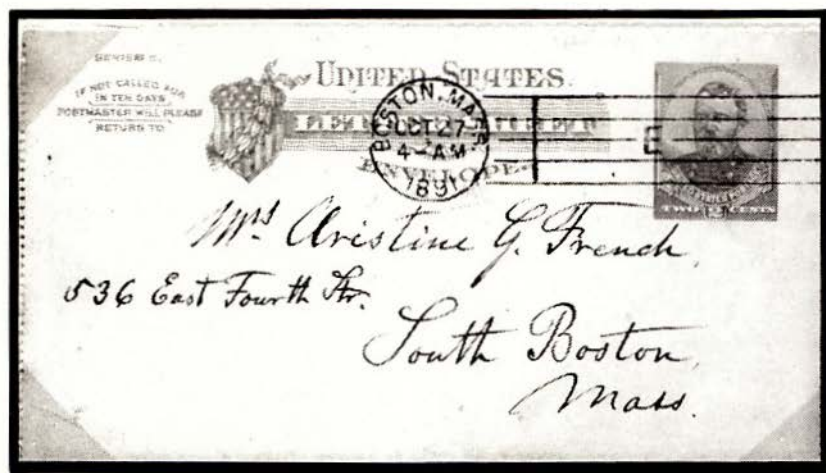 SERIES
IF NOT CALLED FOR
IN TEN DAYS
POSTMASTER WILL PLEASE
RETURN TO
UNITED STATES.
LETTER SHEET
ENVELOPE.
BOSTON, MASS.
OCT 27
4 - AM
1891
E
TWO 2 CENTS
Mrs Aristine G. French,
536 East Fourth Str.
South Boston,
Mass.